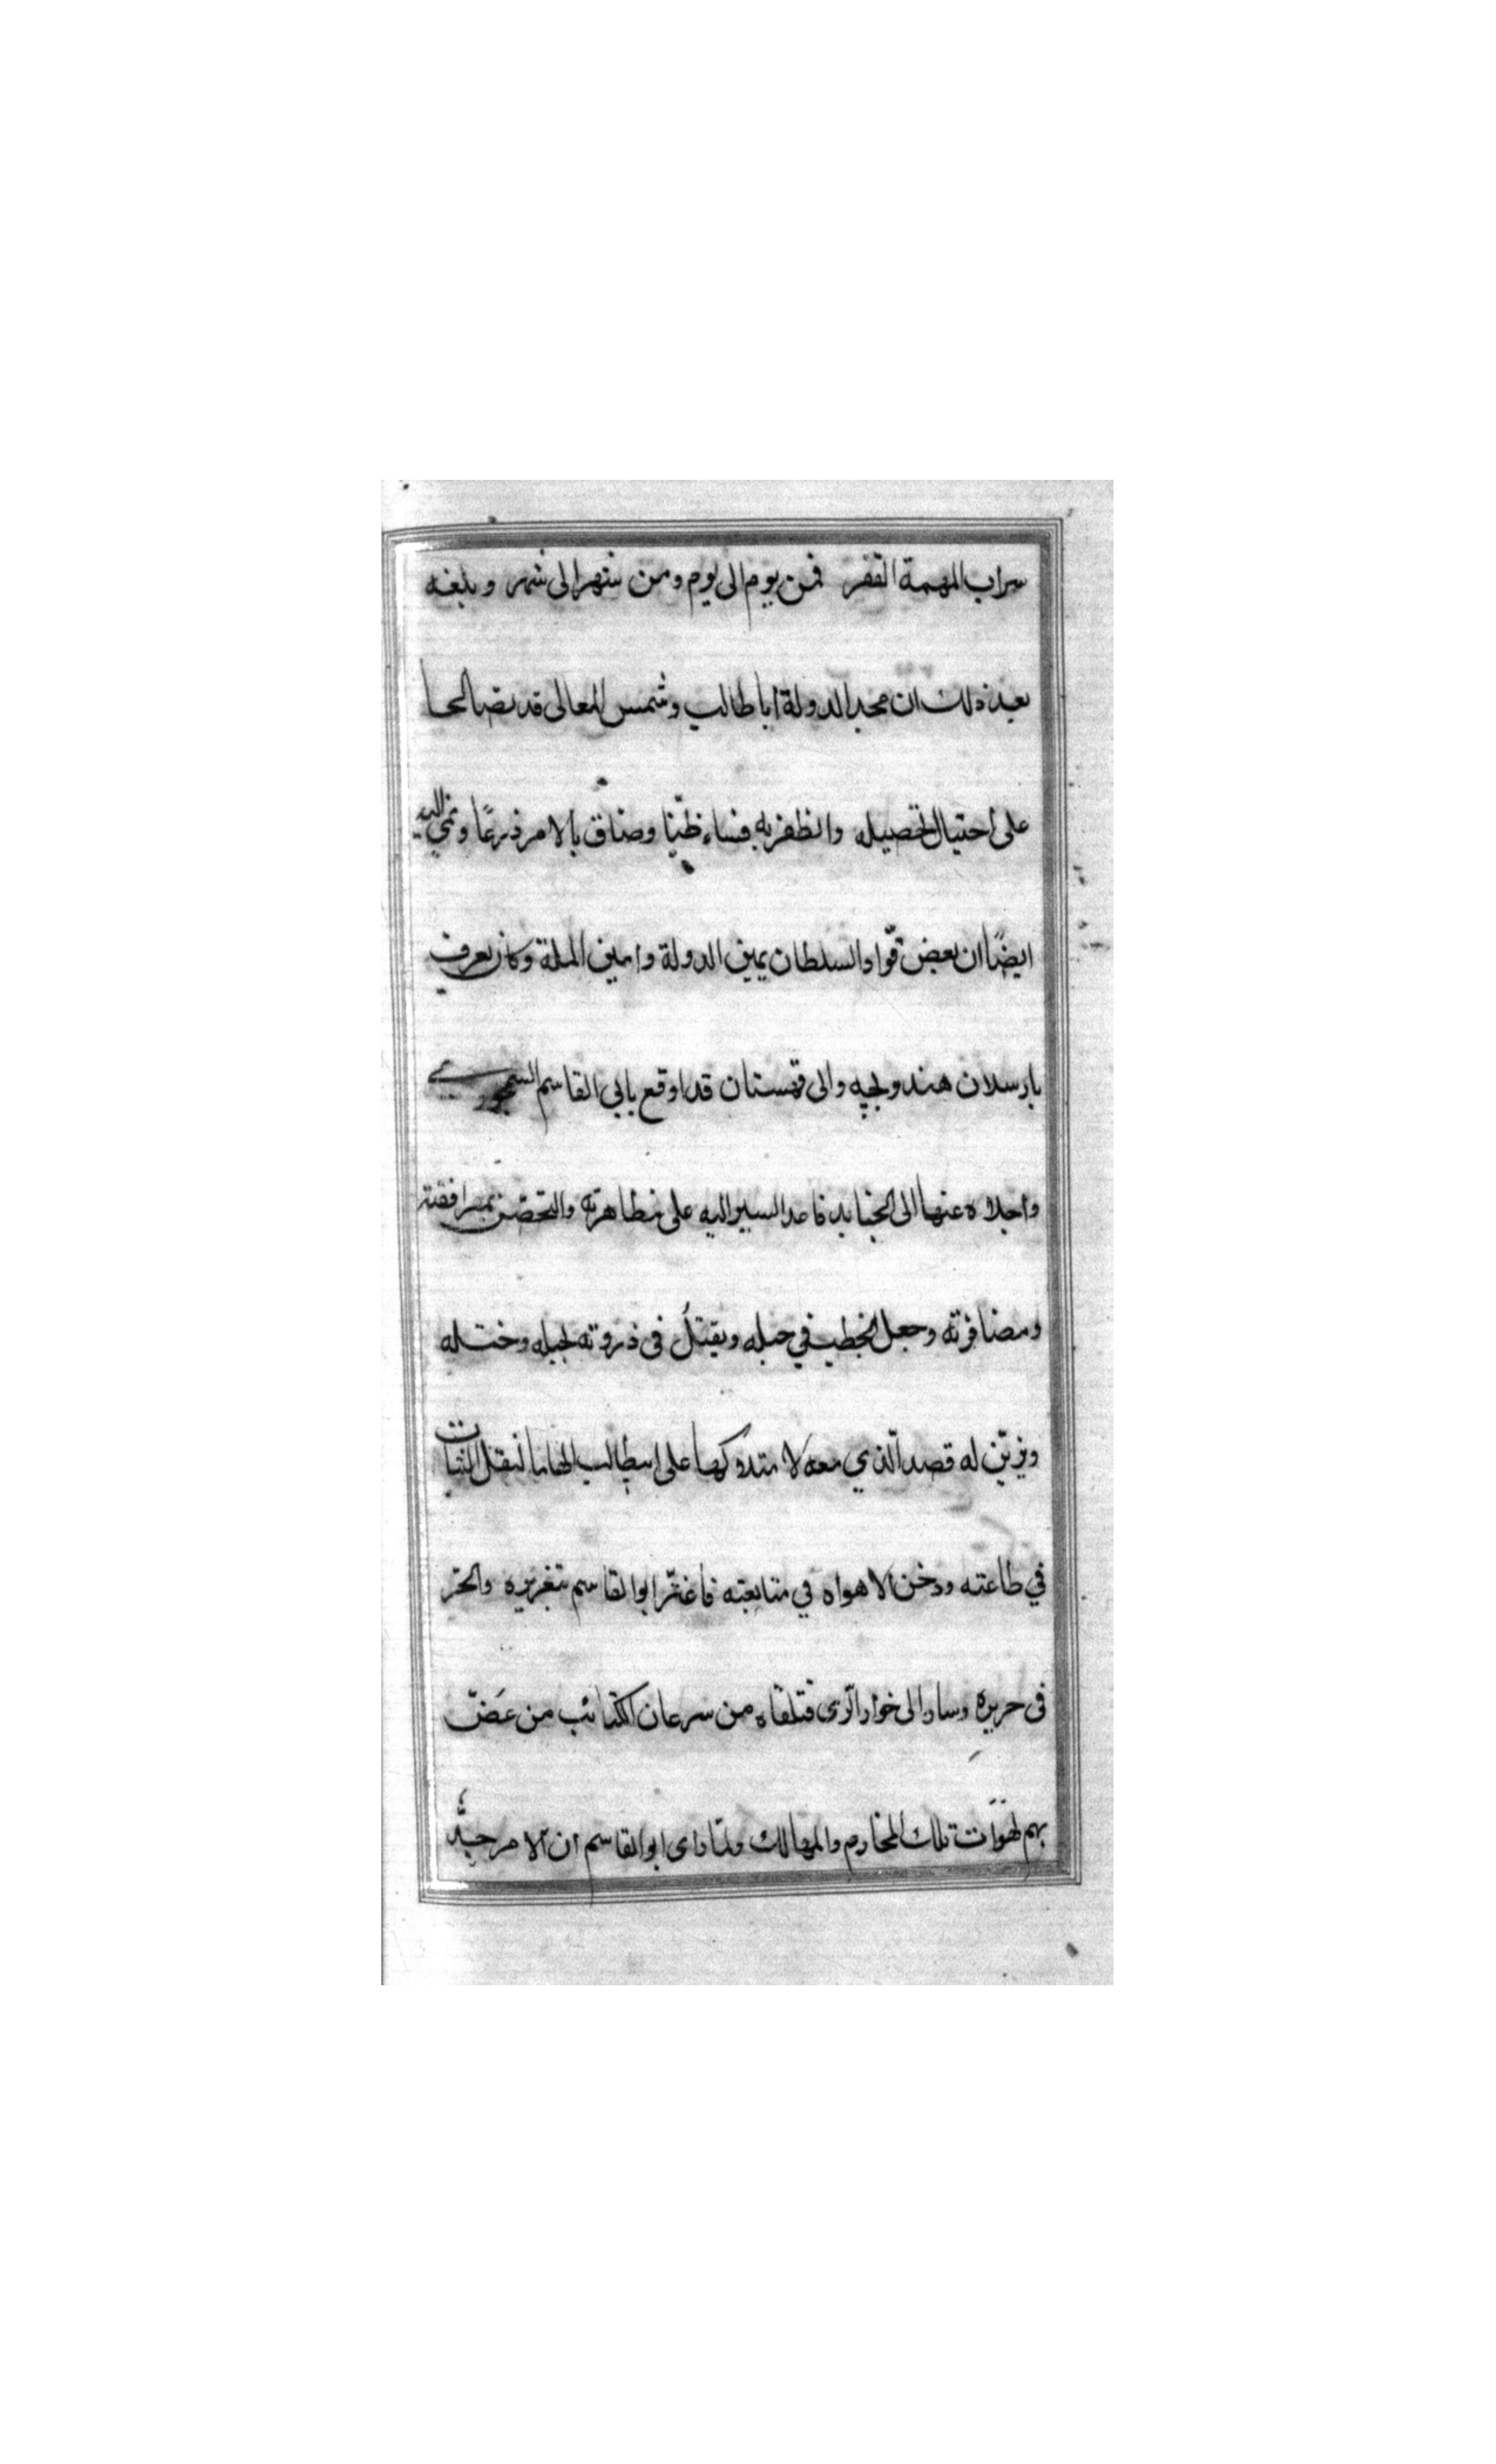 سراب المهمة القفر فمن يوم الى يوم ومن شهر الى شهر وبلغه
بعد ذلك ان مجد الدولة ابا طالب وشمس المعالى قد تصالحا
على احتيال لتحصيله والظفر به فساء ظنّا وضاق بالامر ذرعًا ونمى اليه
ايضًا ان بعض قوّاد السلطان يمين الدولة وامين الملة وكان يعرف
بارسلان هندوبچه والى قهستان قد اوقع بابي القاسم السمجورى
واجلاه عنها الى الجنابد فاعد السير اليه على مظاهرته والتحصّن بمرافقته
ومضافرته وجعل يخطب في حبله ويفتلُ فى ذروته لحبله وختله
ويزيّن له قصد الّذي معه لا متدوكها على ابيطالب لنقل النيات
في طاعته ودخن الاهواء في متابعته فاغترّ ابو القاسم بتغريره وانجرّ
فى جريره وسار الى خوار الرّى فتلقاه من سرعان الكتائب من غصّت
بهم لهَوَات تلك المخارم والمهالك ولمّا راى ابو القاسم ان الامر جدٌّ